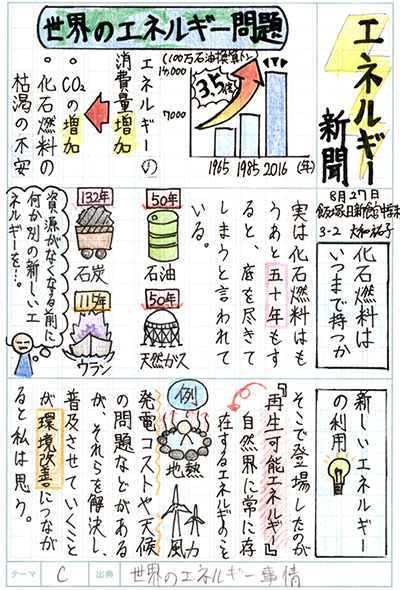 エネルギー
新聞
8月27日
3-2
世界のエネルギー問題
(100万石油換算トン)
14,000
7000
3.5倍
1965 1985 2016 (年)
エネルギーの
消費量増加
・CO₂の増加
・化石燃料の
枯渇の不安
化石燃料は
いつまで持つか
実は化石燃料はも
うあと五十年もす
ると、底を尽きて
しまうと言われて
いる。
50年
石油
132年
石炭
50年
天然ガス
115年
ウラン
資源がなくなる前に
何か別の新しいエ
ネルギーを…。
新しいエネルギー
の利用
そこで登場したのが
『再生可能エネルギー』
自然界に常に存
在するエネルギーのこと
例
地熱
風力
発電コストや天候
の問題などがある
が、それらを解決し、
普及させていくこと
が環境改善につなが
ると私は思う。
テーマ C 出典 世界のエネルギー事情